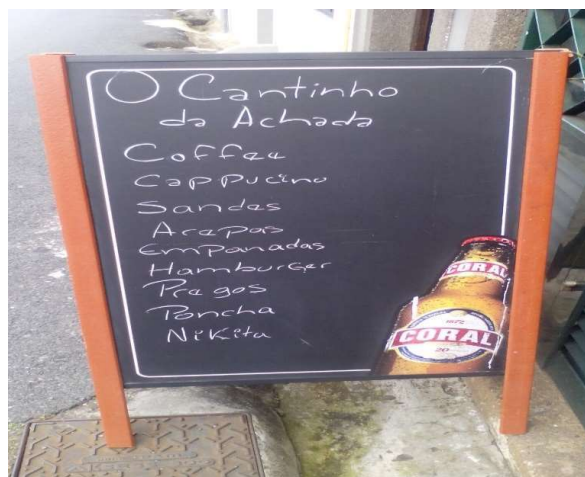 O Cantinho
da Achada
Coffee
Cappucino
Sandes
Arepas
Empanadas
Hamburger
Pregos
Poncha
Nikita
CORAL
CORAL